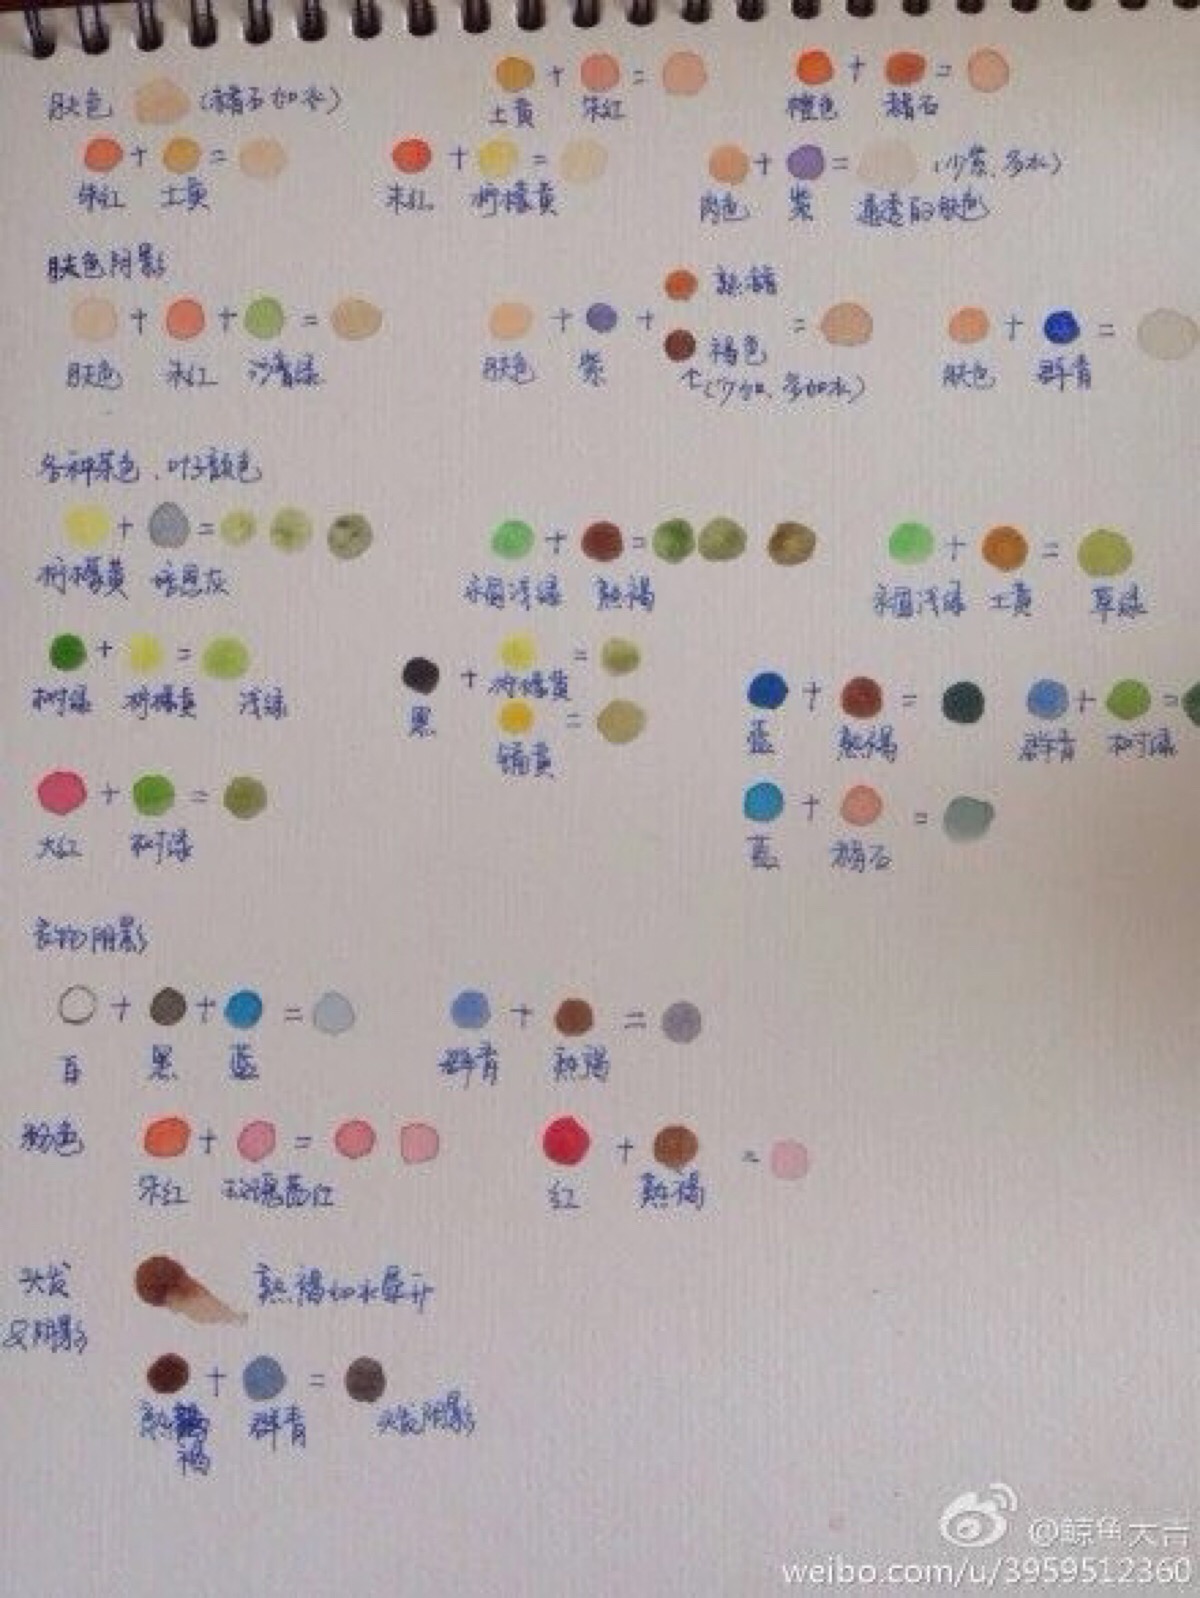 肤色 (赭石加水)
土黄 + 朱红 =
橙色 + 赭石 =
朱红 + 土黄 =
朱红 + 柠檬黄 =
肉色 + 紫 = 通透的肤色 (少紫、多水)
肤色阴影
肤色 + 朱红 + 沙普绿 =
肤色 + 紫 + 熟赭 褐色 =
↑(少加、多加水)
肤色 + 群青 =
各种草色、叶子颜色
柠檬黄 + 培恩灰 =
永固浅绿 + 熟褐 =
永固浅绿 + 土黄 = 草绿
树绿 + 柠檬黄 = 浅绿
黑 + 柠檬黄 =
镉黄 =
蓝 + 熟褐 =
群青 + 树绿 =
大红 + 树绿 =
蓝 + 赭石 =
衣物阴影
白 + 黑 + 蓝 =
群青 + 熟褐 =
粉色
朱红 + 玫瑰茜红 =
红 + 熟褐 =
头发
&阴影
熟褐加水晕开
熟褐 + 群青 = 头发阴影
@鲸鱼大吉
weibo.com/u/3959512360